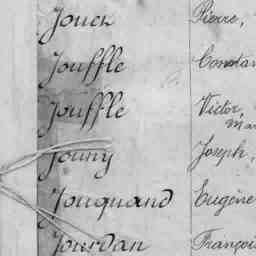 Jouen Pierre,
Jouffle Constan
Jouffle Victor,
Mar
Jouny Joseph,
Jouquand Eugène
Jourdan Françoi